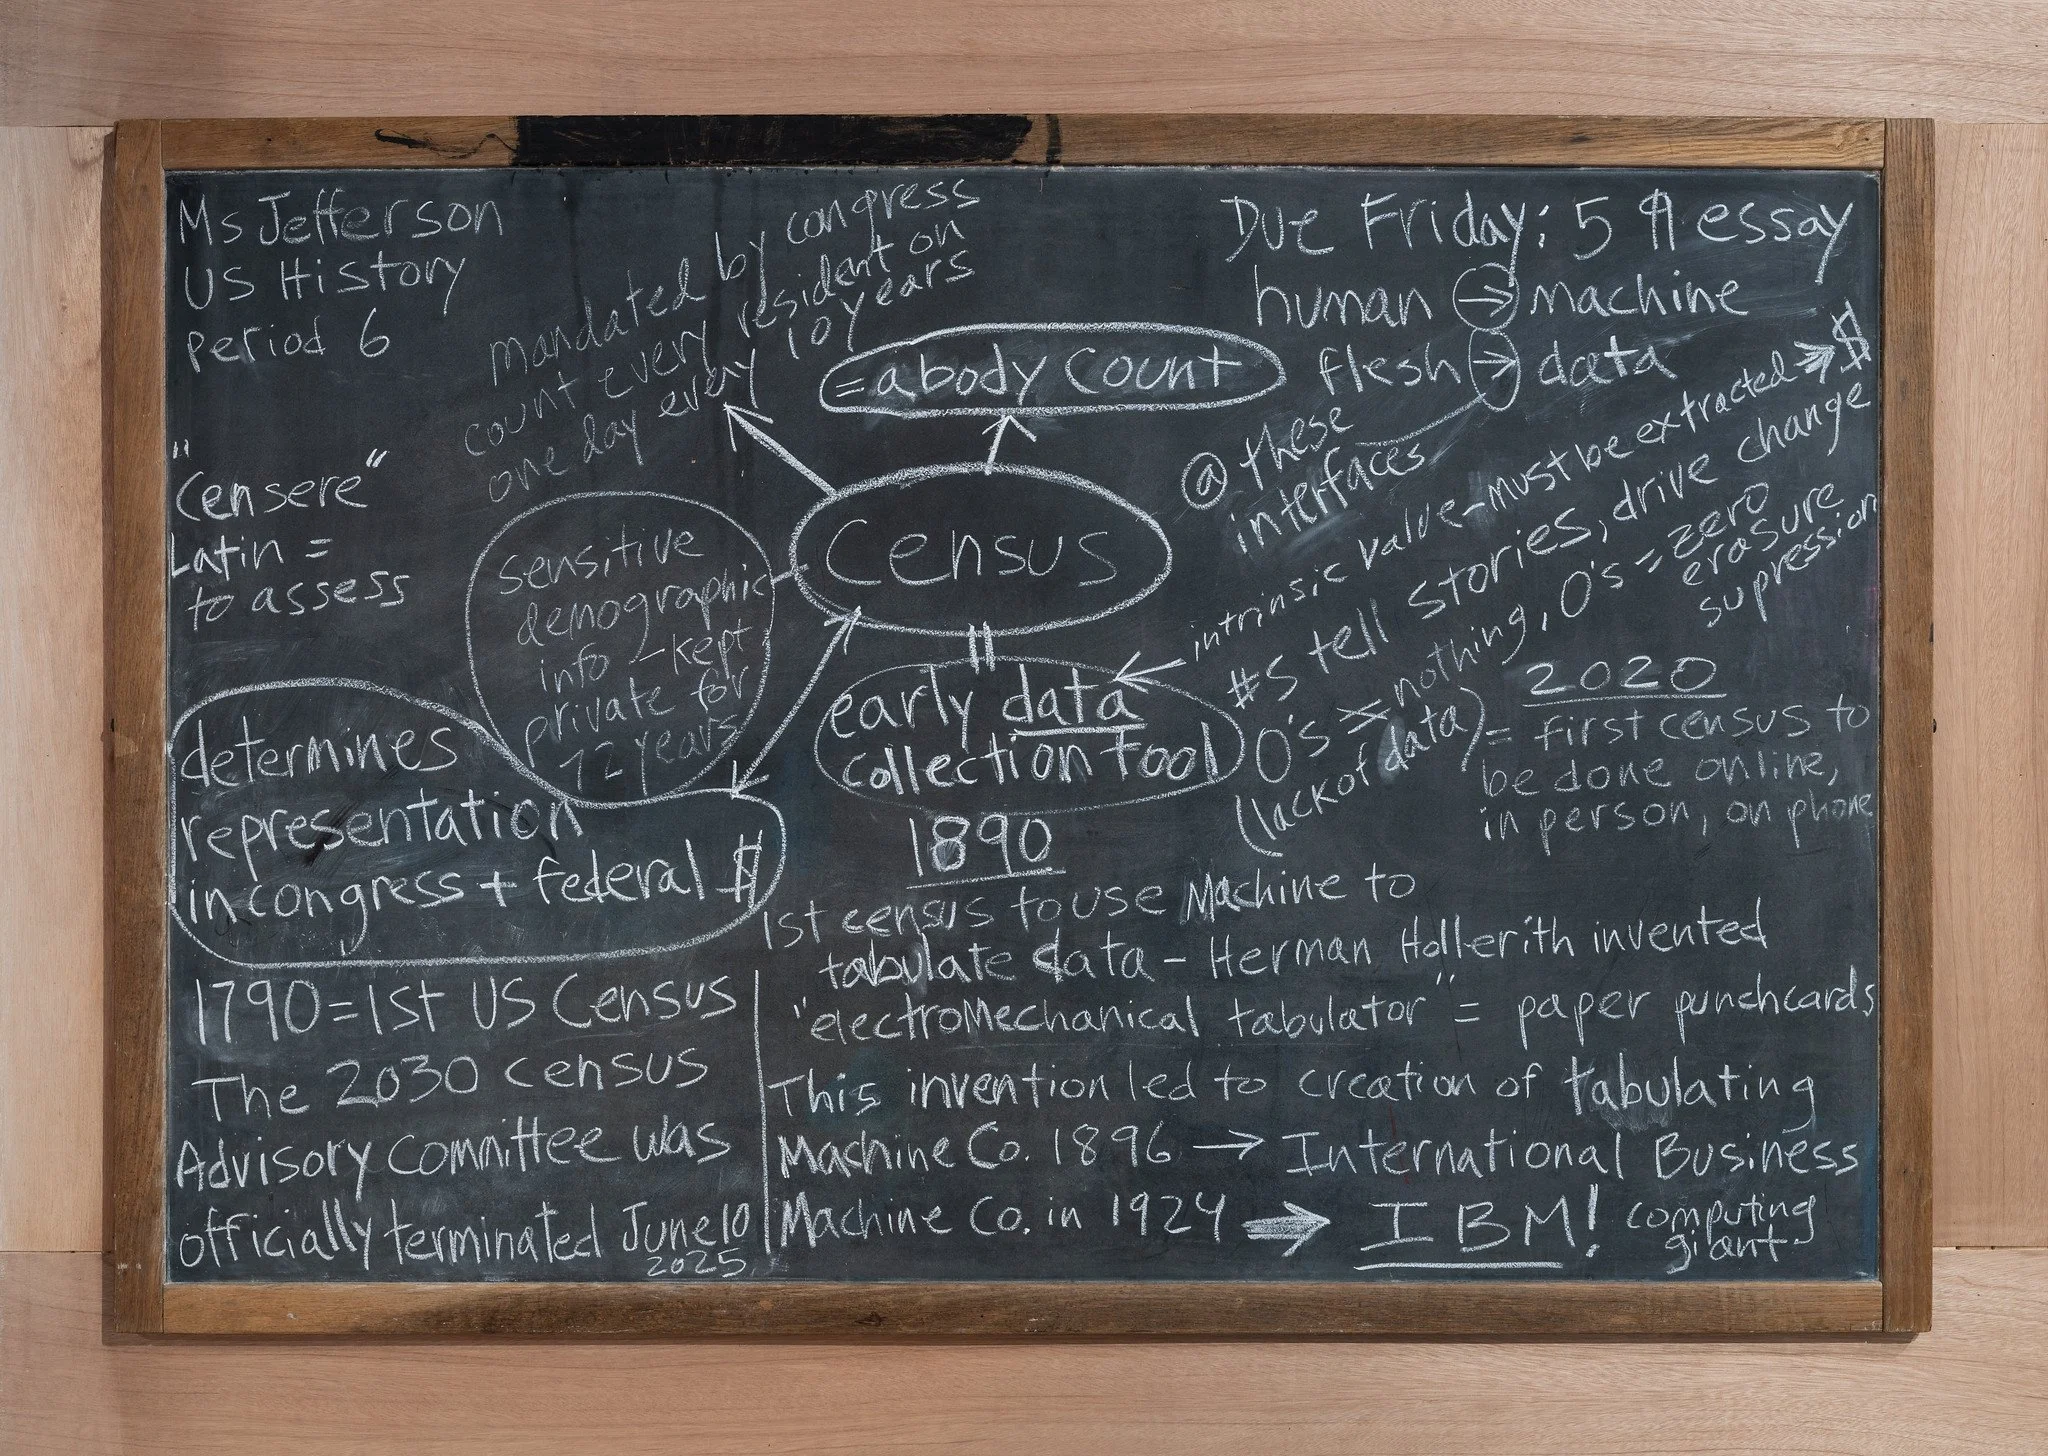 Ms Jefferson
US History
period 6
mandated by congress
count every resident on
one day every 10 years
= a body count
Due Friday: 5 ¶ essay
human → machine
flesh → data
@ these
interfaces
intrinsic value - must be extracted → $
#s tell stories, drive change
0's = nothing, 0's = zero
erasure
supression
(lack of data)
"Censere"
Latin =
to assess
Census
sensitive
demographic
info - kept
private for
72 years
early data
collection tool
determines
representation
in congress + federal $
2020
= first census to
be done online,
in person, on phone
1890
1st census to use Machine to
tabulate data - Herman Hollerith invented
"electroMechanical tabulator" = paper punchcards
This invention led to creation of tabulating
Machine Co. 1896 → International Business
Machine Co. in 1924 → IBM! computing
giant
1790 = 1st US Census
The 2030 census
Advisory committee was
officially terminated June 10
2025